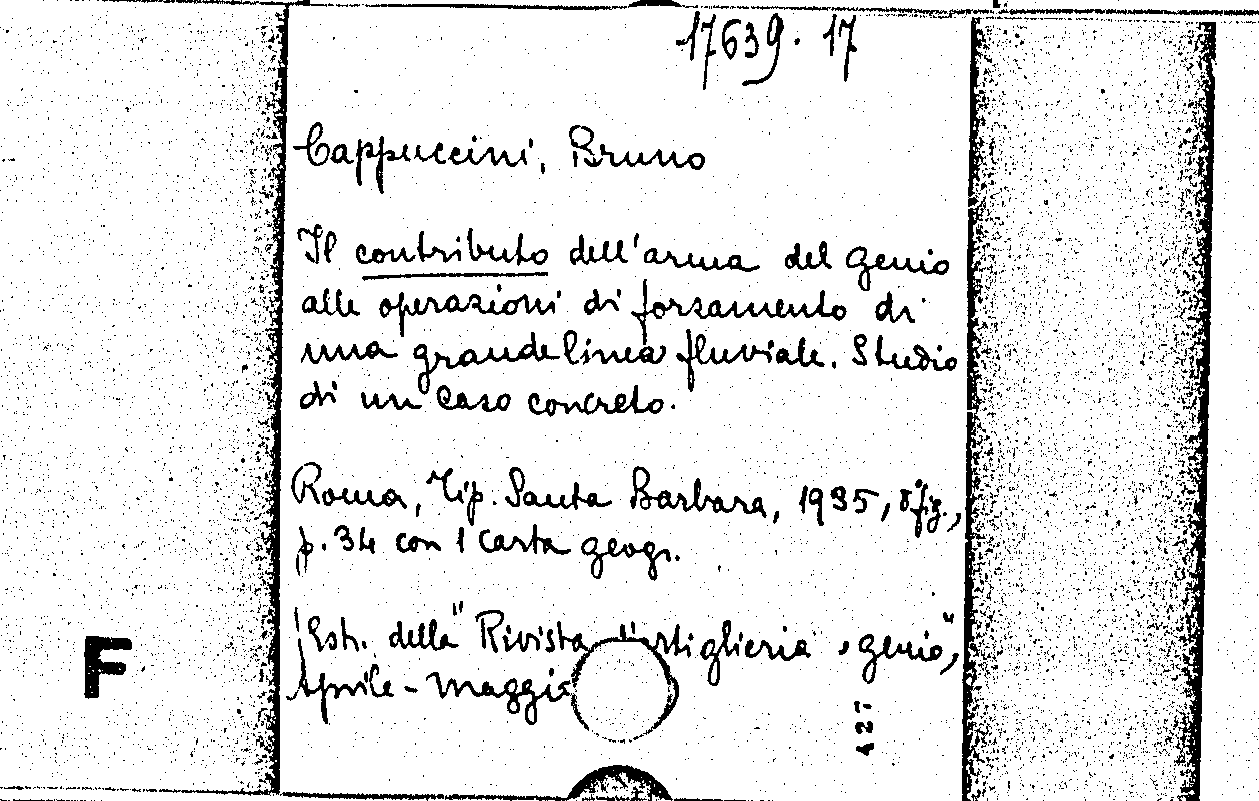 17639. 17
Cappuccini, Bruno
Il contributo dell'arma del genio
alle operazioni di forzamento di
una grande linea fluviale. Studio
di un caso concreto.
Roma, Tip. Santa Barbara, 1935, 8° fig.,
p. 34 con 1 carta geogr.
(Estr. della "Rivista d'artiglieria e genio",
Aprile - Maggio
F
427